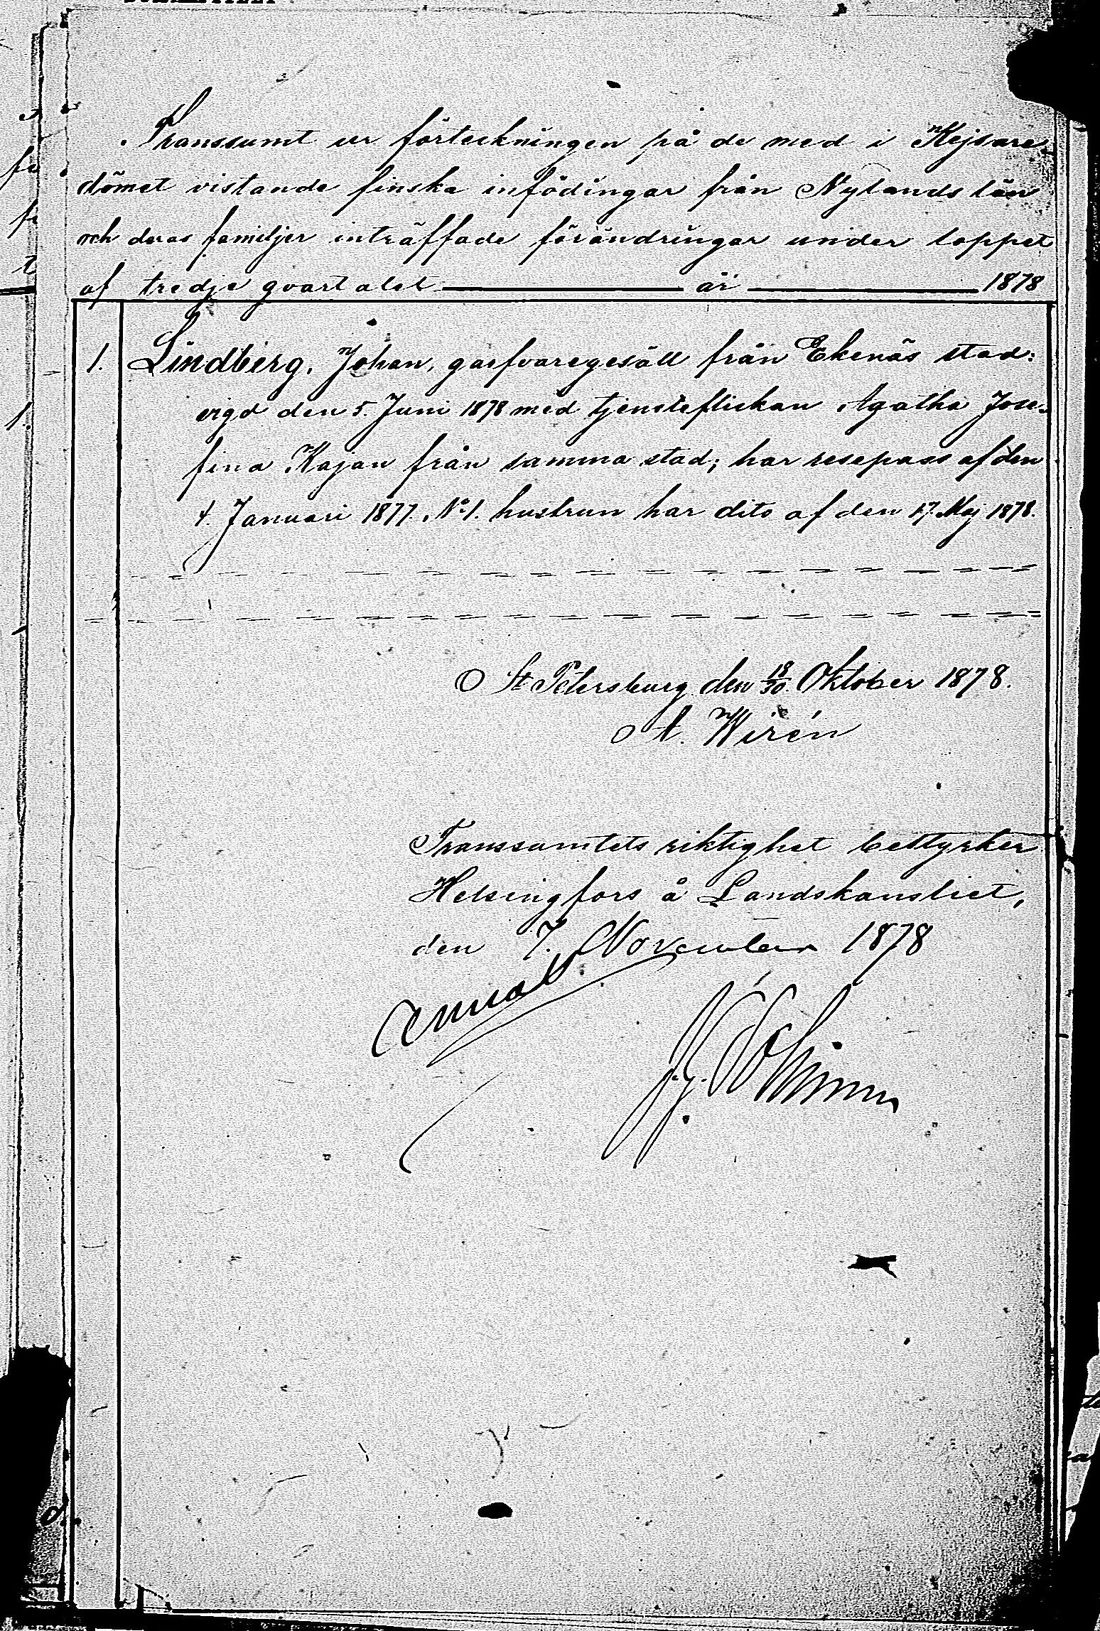 Transsumt ur förteckningen på de med i Kejsare-
dömet vistande finska infödingar från Nylands län
och deras familjer inträffade förändringar under loppet
af tredje qvartalet år 1878
1. Lindberg, Johan, garfvaregesäll från Ekenäs stad:
vigd den 5. Juni 1878 med tjensteflickan Agatha Jose-
fina Kajan från samma stad; har resepass af den
4. Januari 1877. No 1. hustrun har dito af den 17. Maj 1878.
St Petersburg den 18/30. Oktober 1878.
A. Wirén
Transsumtets riktighet bettyrker
Helsingfors å Landskansliet,
den 7. November 1878